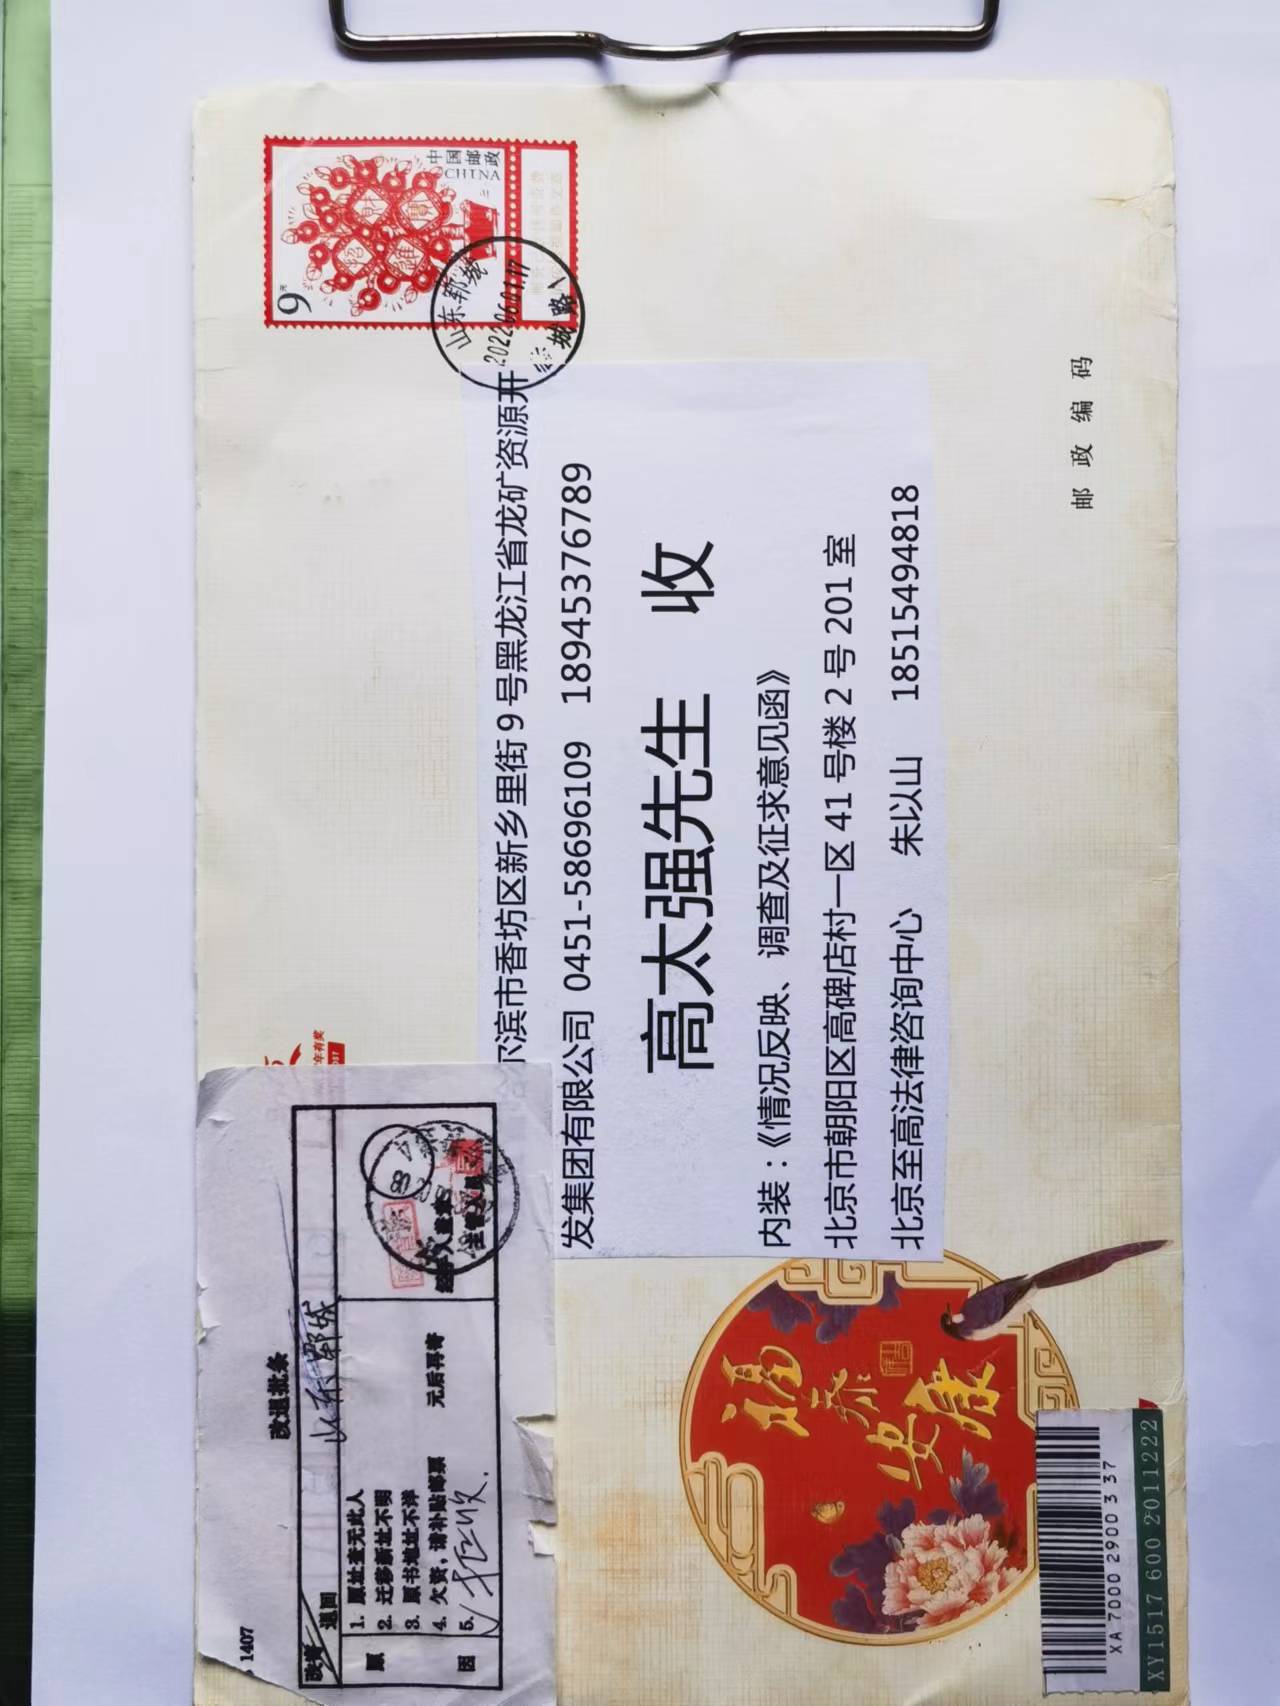 中国邮政
CHINA
9元
招财
进宝
山东郓城
2022.06.01.17
城路
尔滨市香坊区新乡里街9号黑龙江省龙矿资源开
发集团有限公司 0451-58696109 18945376789
高太强先生 收
内装：《情况反映、调查及征求意见函》
北京市朝阳区高碑店村一区41号楼2号201室
北京至高法律咨询中心 朱以山 18515494818
邮政编码
改退批条
改寄
退回
山东郓城
原因
1. 原址查无此人
2. 迁移新址不明
3. 原书地址不详
4. 欠资，请补贴邮票 元后再寄
5. 拒收.
1407
福泰安康
XA 7000 2900 3 37
XY1517 600 2011222